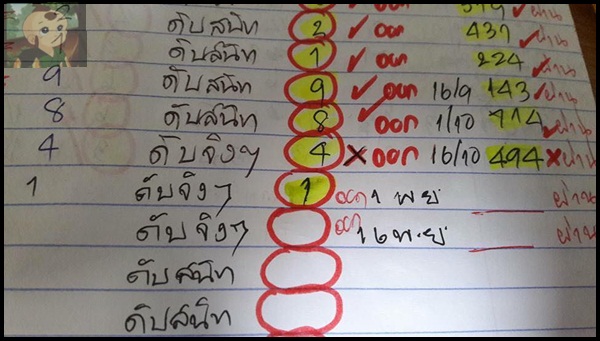 ดับสนิท 2 ✓ ออก 431 ✓ ผ่าน
ดับสนิท 1 ✓ ออก 224 ✓ ผ่าน
9 ดับสนิท 9 ✓ ออก 16/9 143 ✓ ผ่าน
8 ดับสนิท 8 ✓ ออก 1/10 714 ✓ ผ่าน
4 ดับจริงๆ 4 ✗ ออก 16/10 494 ✗ ผ่าน
1 ดับจริงๆ 1 ออก 1 พย ผ่าน
ดับจริงๆ ออก 16 พ.ย ผ่าน
ดับสนิท
ดับสนิท